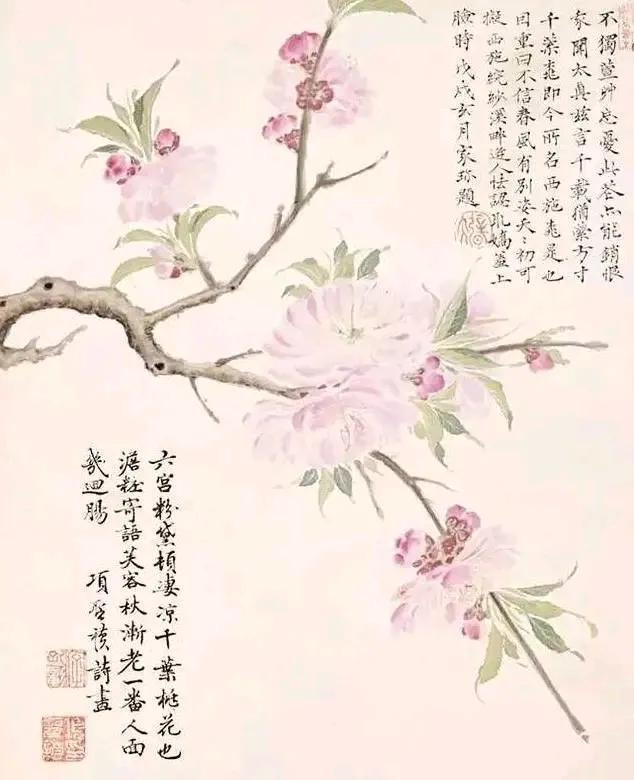 不獨萱艸忘憂此花亦能銷恨
太真玆言千載猶縈方寸
千葉桃即今所名西施桃是也
因重曰不信春風有別姿夭〻初可
擬西施浣紗溪畔人怯認嬌羞上
臉時戊戌月家珍題
六宮粉黛頓淒涼千葉桃花也
澹粧寄語芙容秋漸老一番人面
幾迴腸 項聖謨詩畫